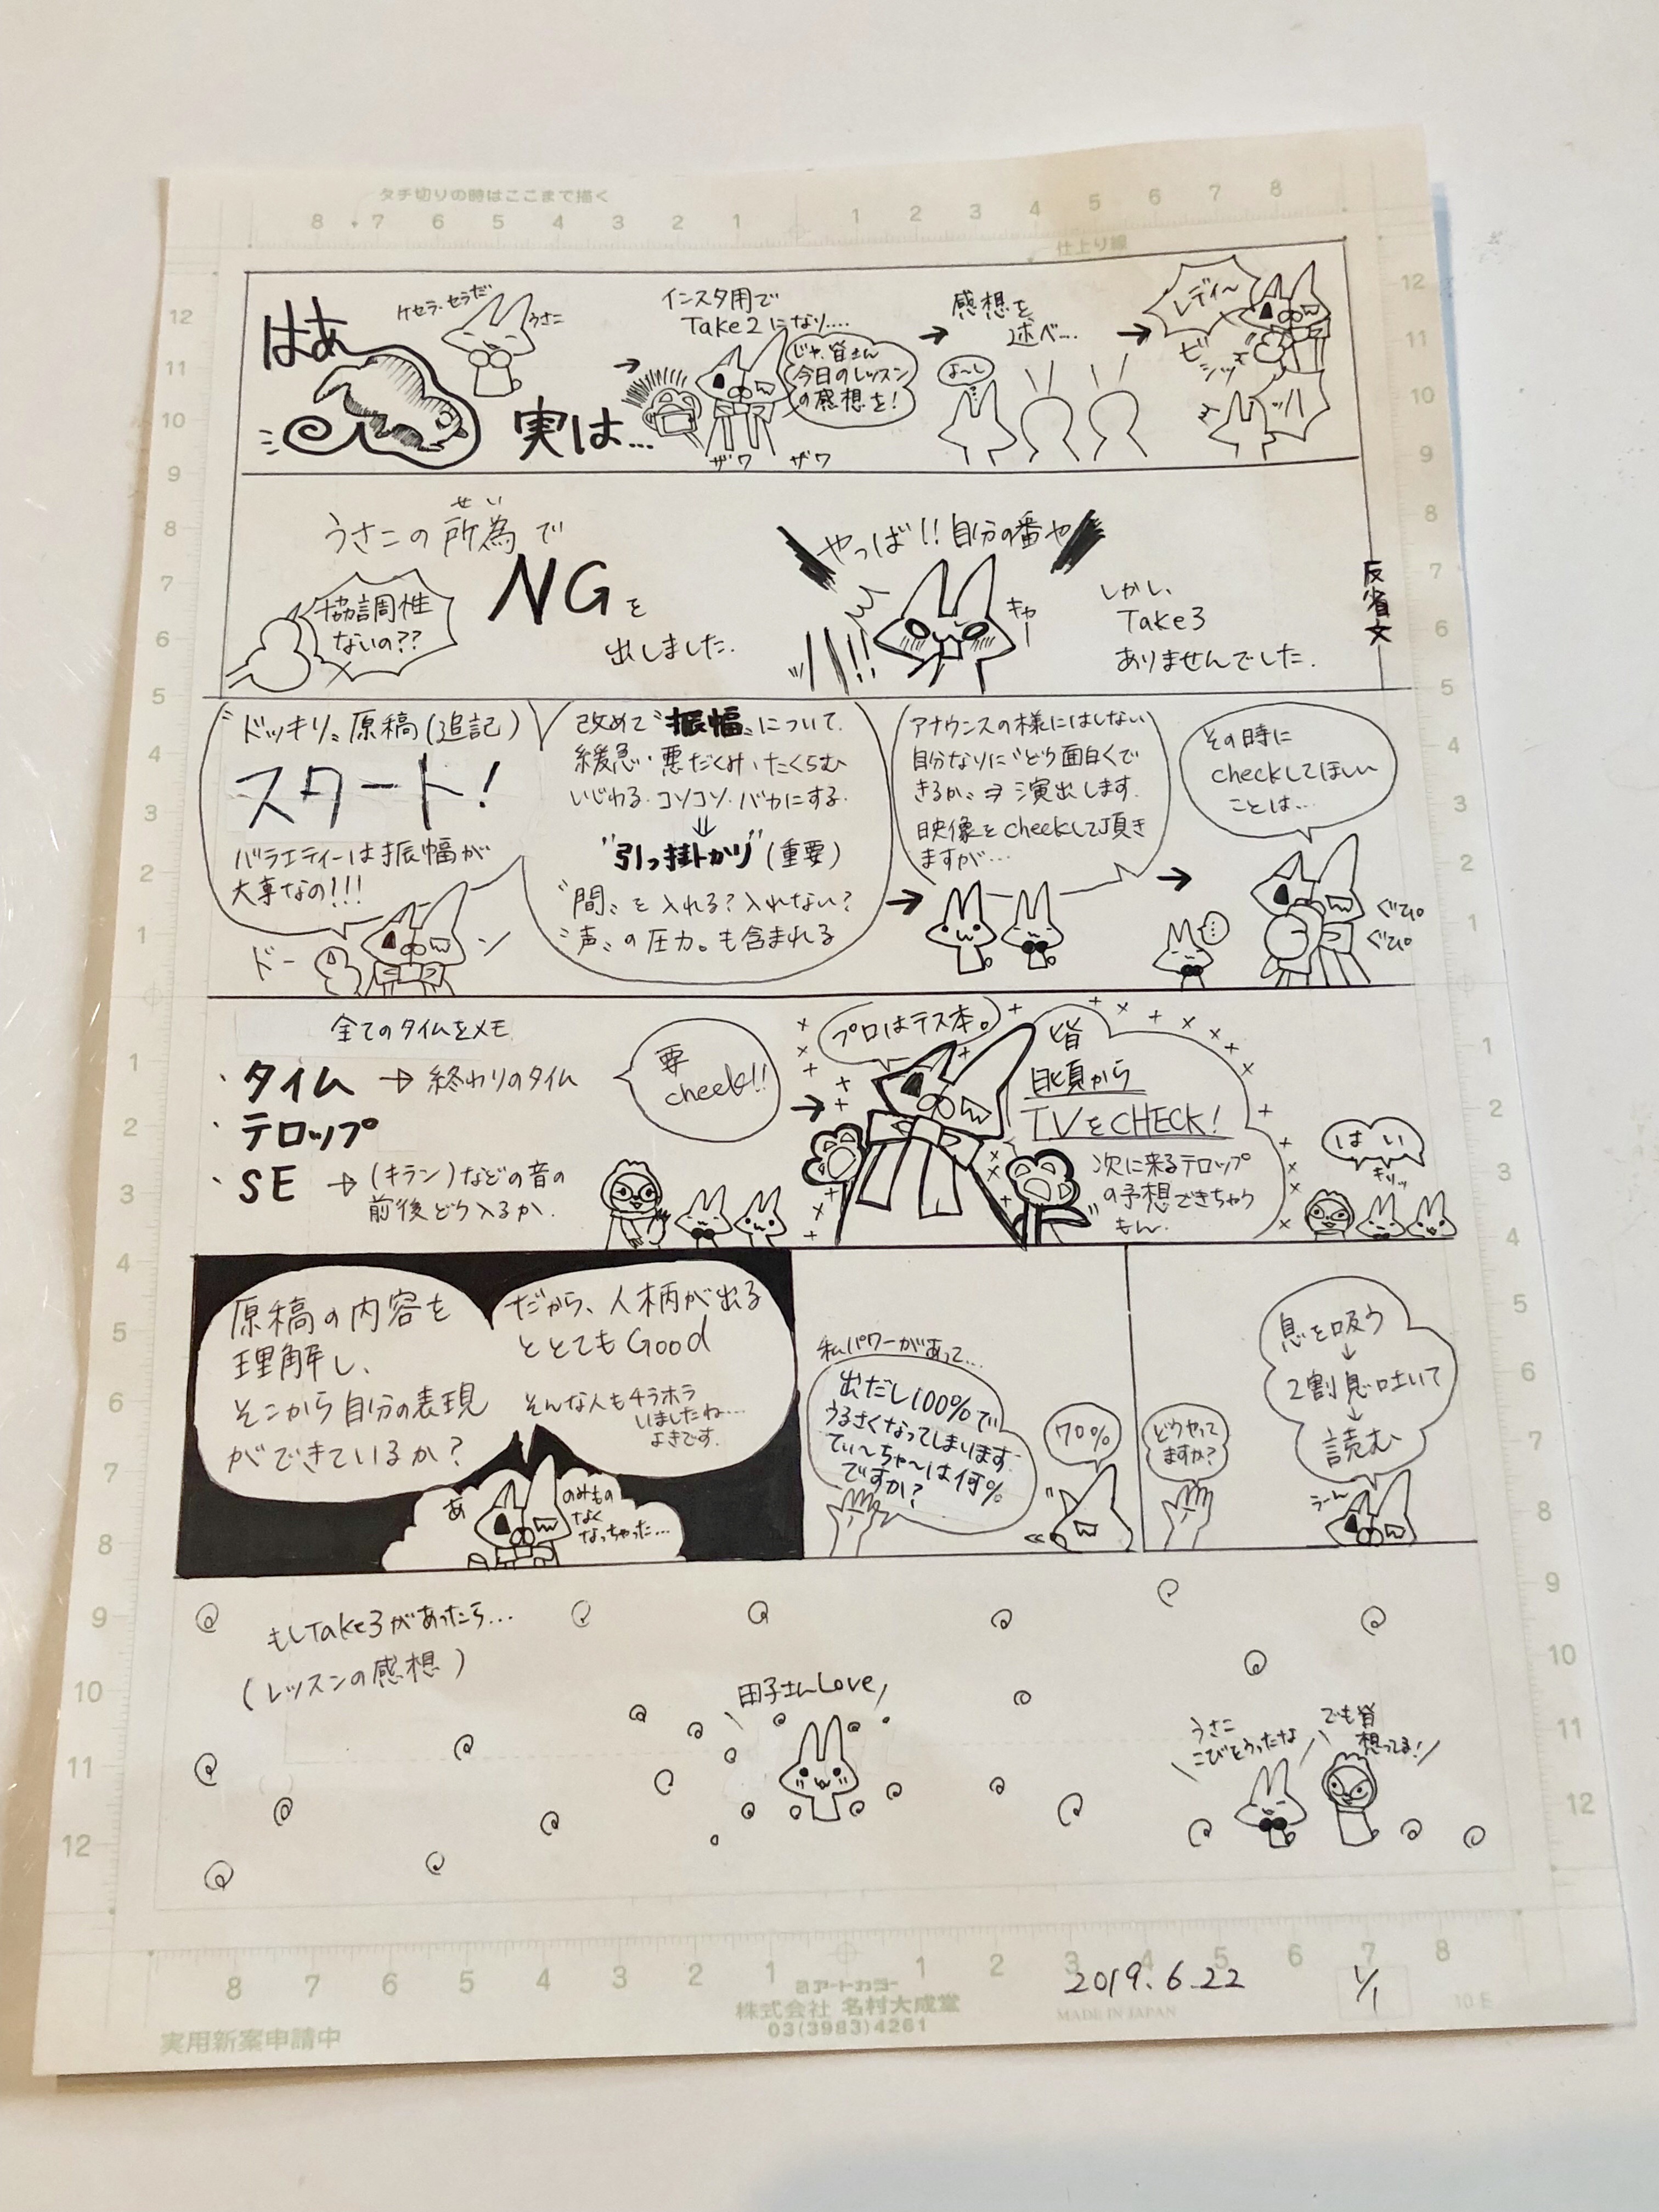 タチ切りの時はここまで描く
8 7 6 5 4 3 2 1 1 2 3 4 5 6 7 8
仕上り線
はあ
ケセラ・セラだ
うさこ
実は…
インスタ用で
Take2になり….
じゃ、皆さん
今日のレッスン
の感想を!
ザワ ザワ
感想を
述べ…
よ〜し
レディ〜
ビシッ
ハッ
うさこの所為で
せい
NGを
出しました.
協調性
ないの??
やっば!!自分の番や
キャー
しかし、
Take3
ありませんでした.
反省文
〝ドッキリ〟原稿(追記)
スタート!
バラエティーは振幅が
大事なの!!!
ドーン
改めて〝振幅〟について.
緩急・悪だくみ・たくらむ
いじわる・コソコソ・バカにする.
⇓
〝引っ掛かり〟(重要)
〝間〟を入れる?入れない?
〝声〟の圧力。も含まれる
アナウンスの様にはしない
自分なりに〝どう面白くで
きるか〟⇒演出します.
映像をcheckして頂き
ますが…
その時に
checkしてほしい
ことは…
ぐびぐび
全てのタイムをメモ
・タイム → 終わりのタイム
・テロップ
・SE → (キラン)などの音の
前後どう入るか.
要
check!!
プロはテス本。
皆
日頃から
TVをCHECK!
次に来るテロップ
の予想できちゃう
もん.
はい
キリッ
原稿の内容を
理解し、
そこから自分の表現
ができているか?
だから、人柄が出る
ととてもGood
そんな人もチラホラ
いましたね…
よきです.
あ
のみもの
なく
なっちゃった…
私パワーがあって…
出だし100%で
うるさくなってしまいます.
てぃ〜ちゃ〜は何%
ですか?
70%
どうやって
ますか?
息を吸う
↓
2割息吐いて
↓
読む
うーん
もしTake3があったら…
(レッスンの感想)
田子さんLove
うさこ
こびをうったな
でも皆
想ってる!
12 11 10 9 8 7 6 5 4 3 2 1 1 2 3 4 5 6 7 8 9 10 11 12
12 11 10 9 8 7 6 5 4 3 2 1 1 2 3 4 5 6 7 8 9 10 11 12
8 7 6 5 4 3 2 1 1 2 3 4 5 6 7 8
アートカラー
株式会社 名村大成堂
03(3983)4261
実用新案申請中
MADE IN JAPAN
2019.6.22
1/1